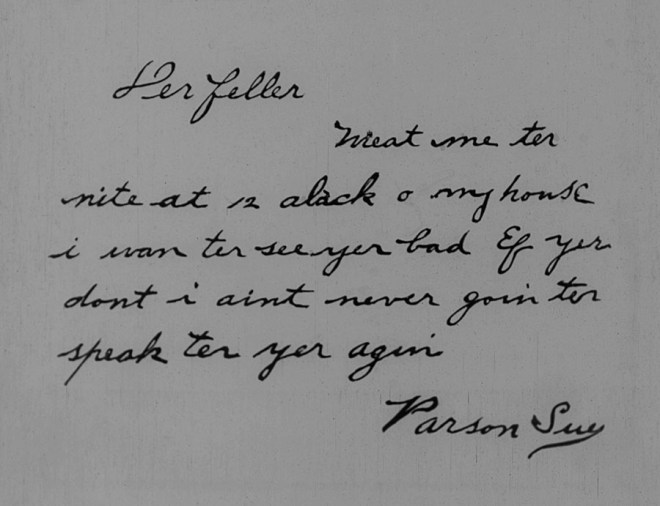 Der feller
Meat me ter
nite at 12 alack o my house
i wan ter see yer bad Ef yer
dont i aint never goin ter
speak ter yer agin
Parson Sue